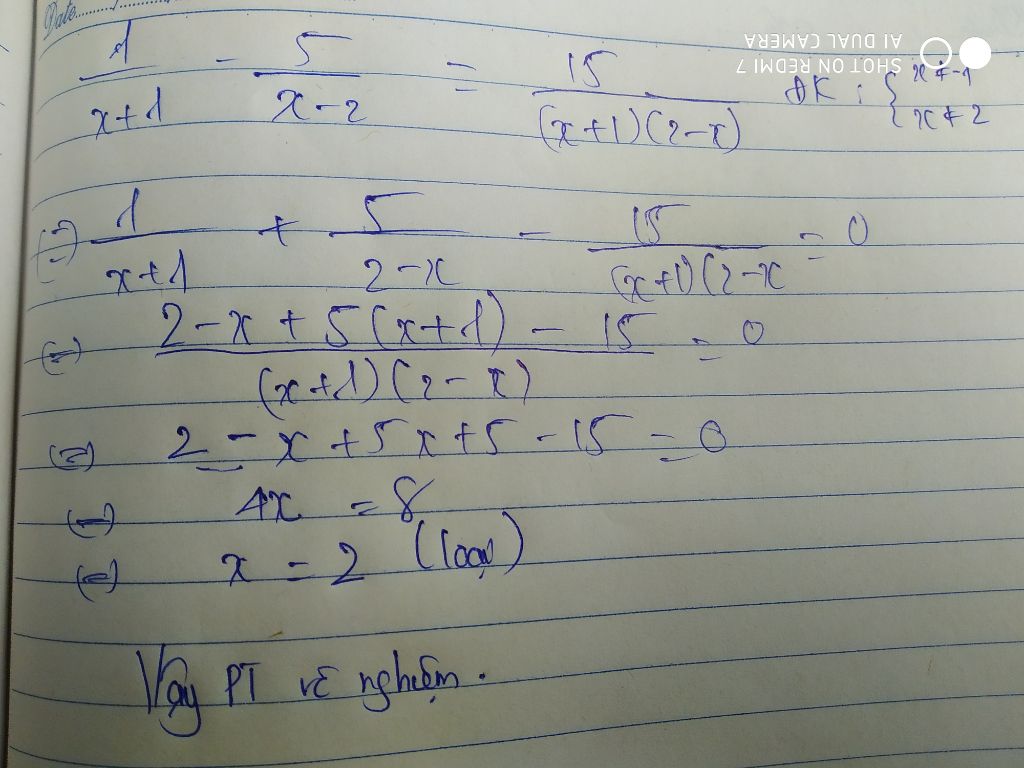 Date
1/(x+1) - 5/(x-2) = 15/((x+1)(2-x)) ĐK : { x ≠ -1
x ≠ 2
SHOT ON REDMI 7
AI DUAL CAMERA
(=) 1/(x+1) + 5/(2-x) - 15/((x+1)(2-x = 0
(=) (2-x+5(x+1) - 15)/((x+1)(2-x)) = 0
(=) 2 - x + 5x + 5 - 15 = 0
(=) 4x = 8
(=) x = 2 (loại)
Vậy PT vô nghiệm.